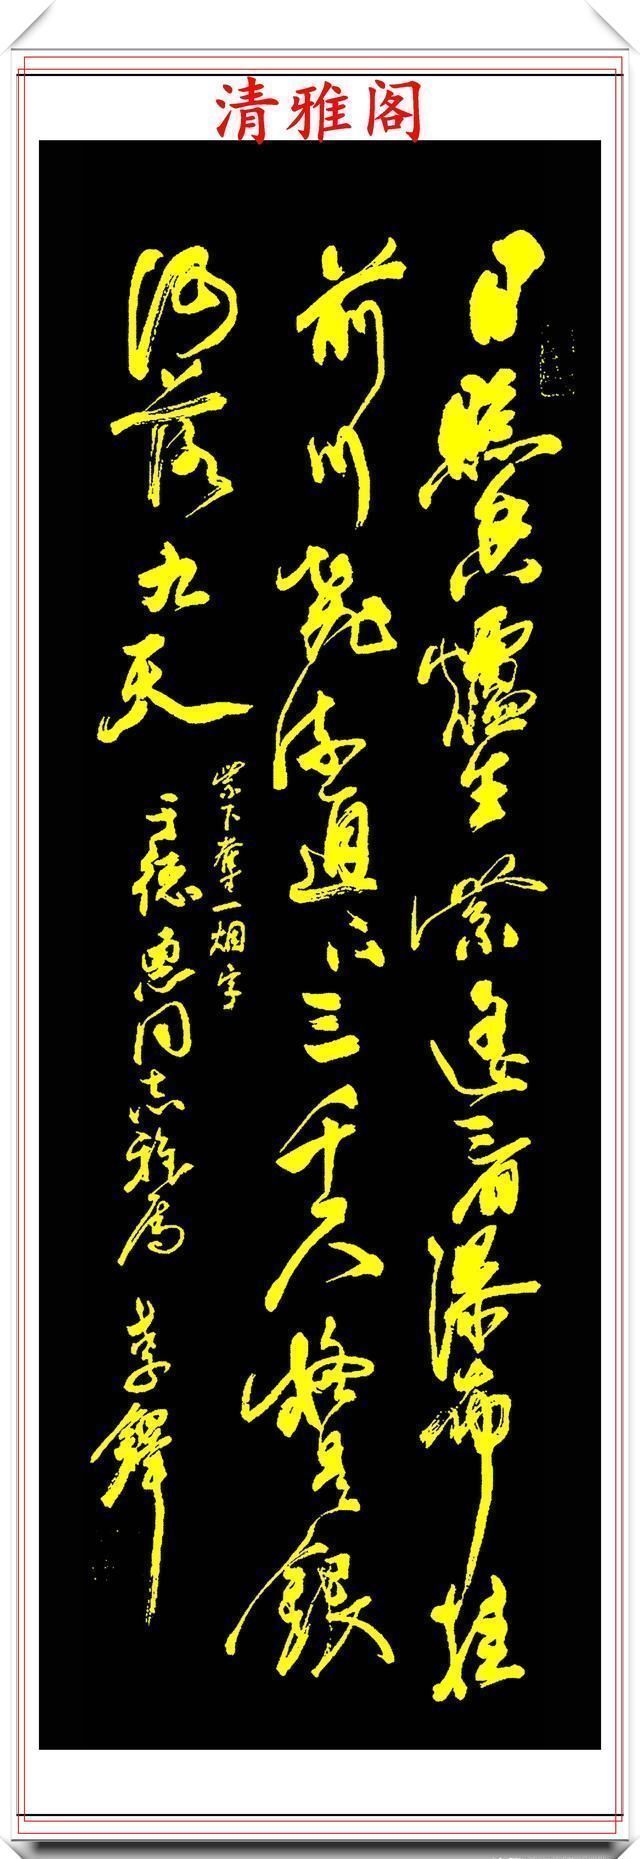 清雅阁
日照香爐生紫遥看瀑布挂
前川飛流直下三千尺疑是銀
河落九天
紫下奪一烟字
于德惠同志雅属
李鐸